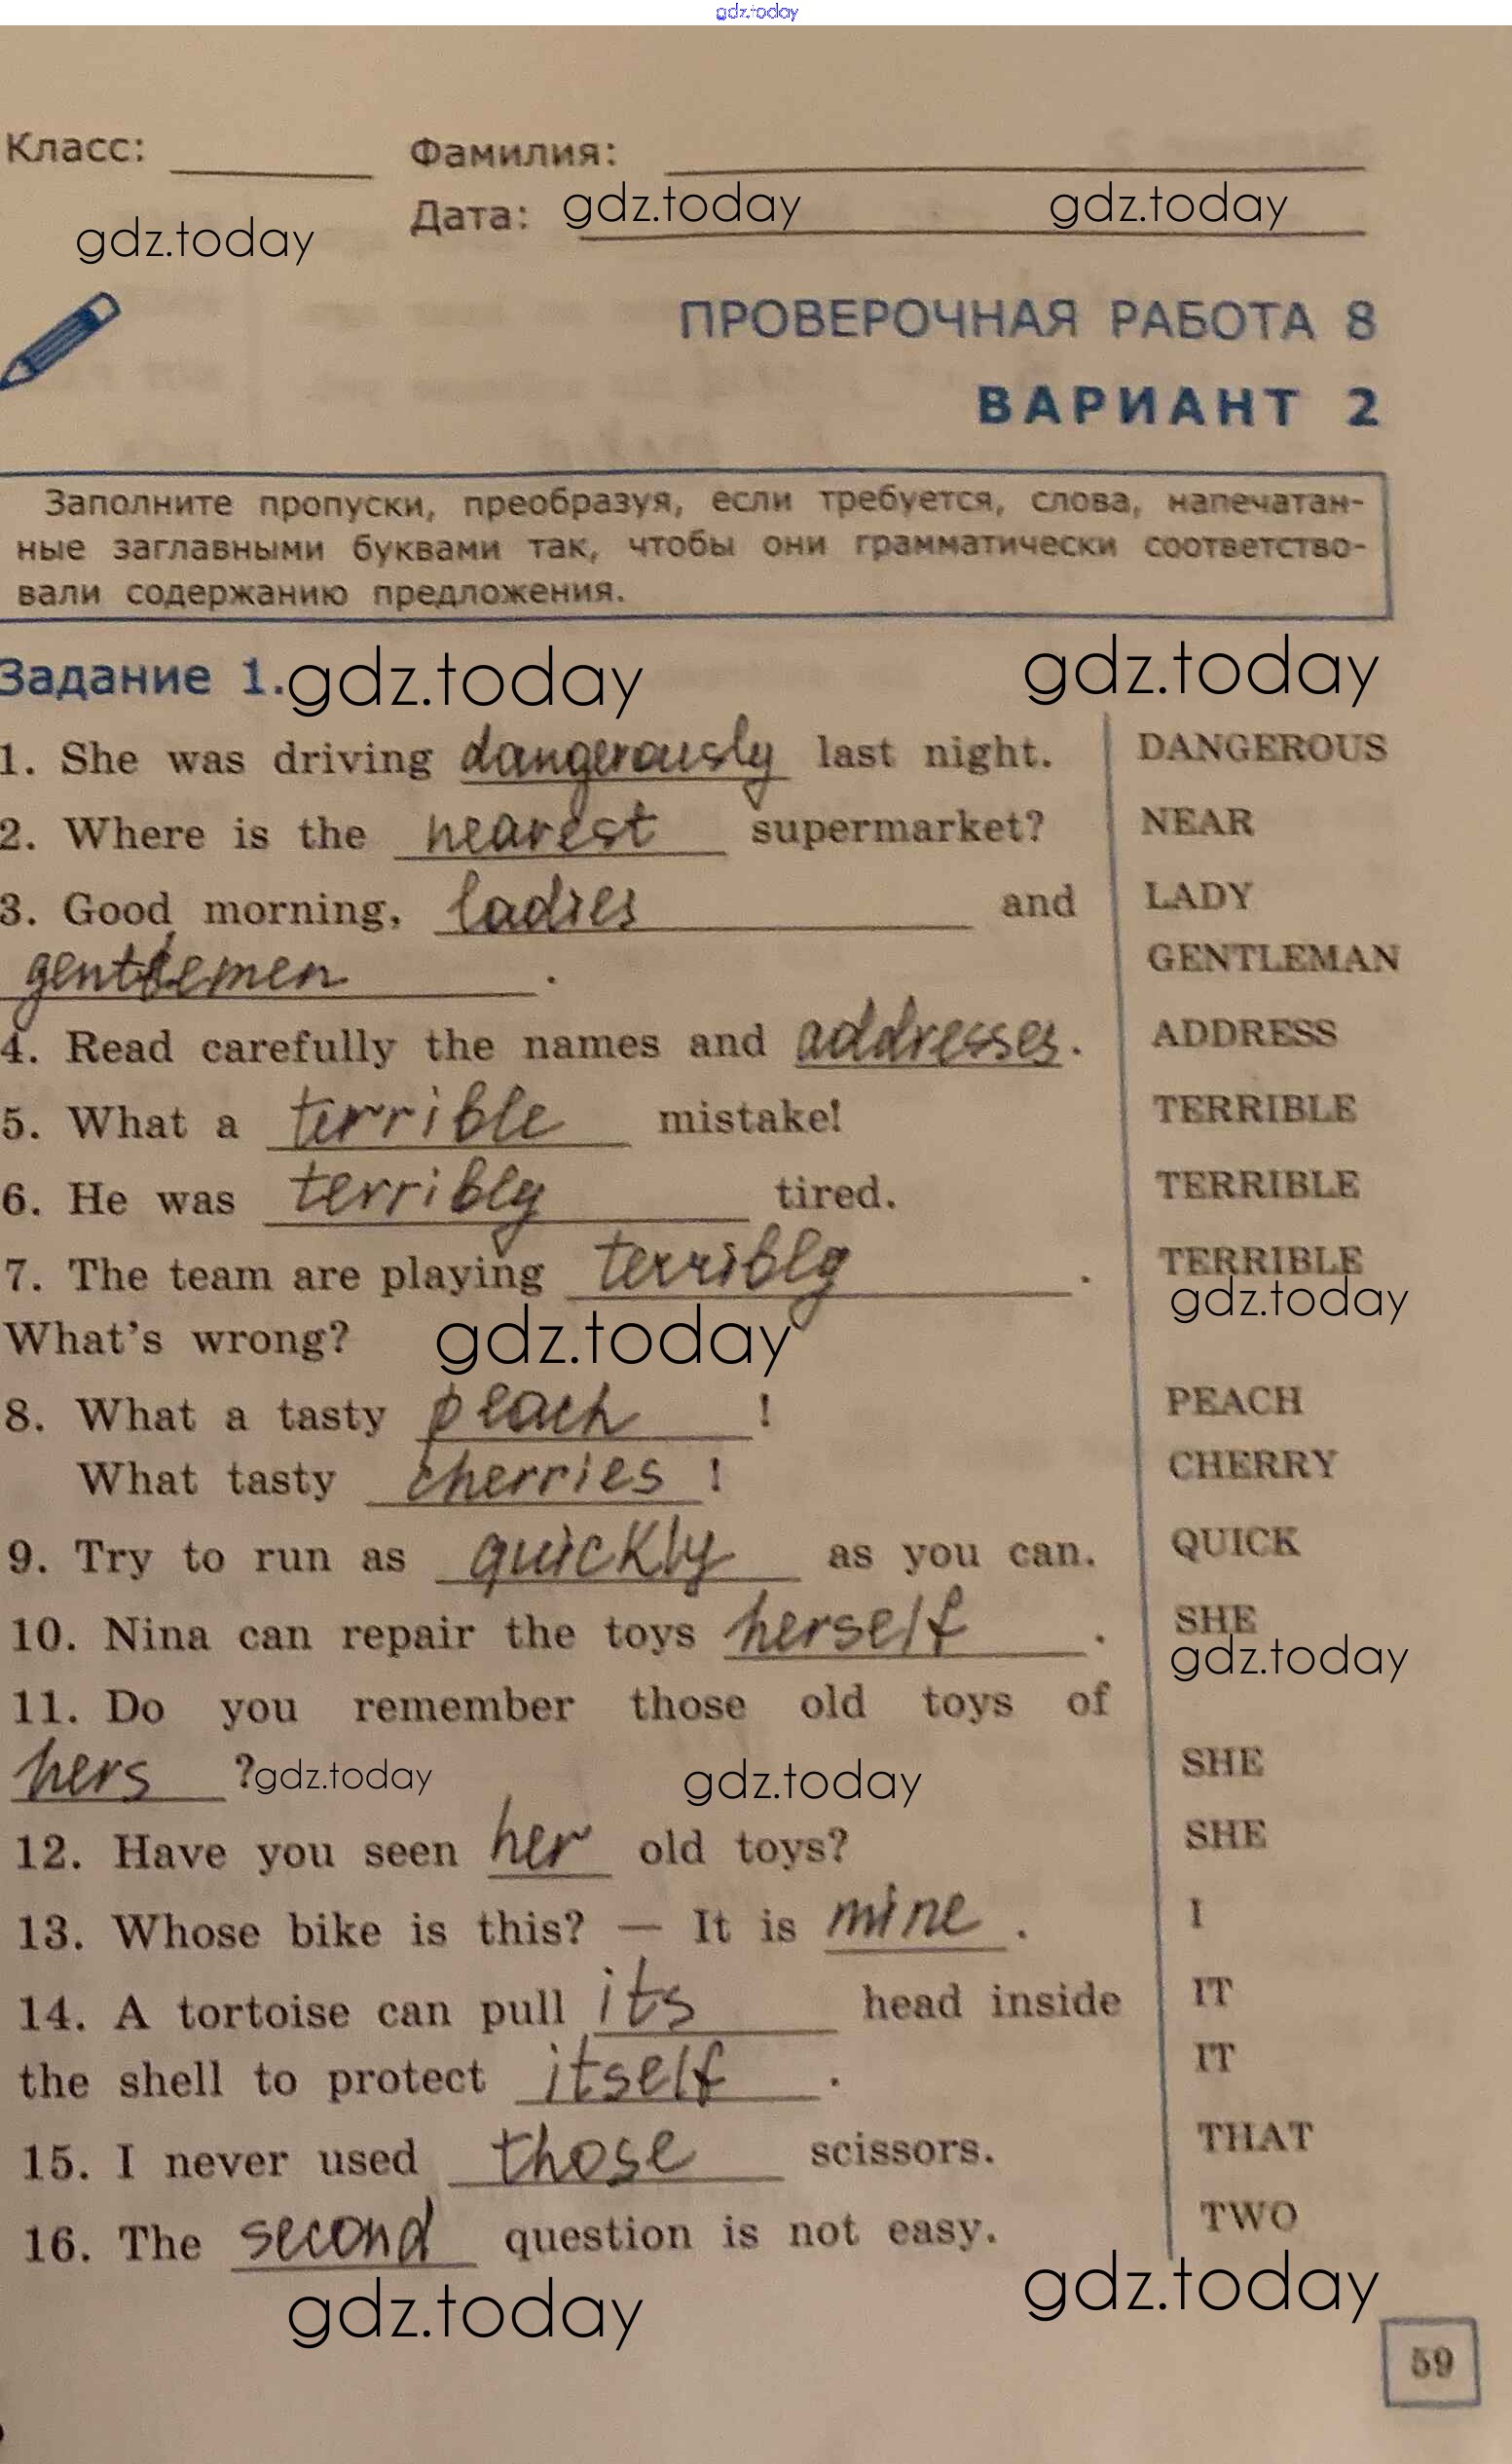 gdz.today
Класс: Фамилия:
gdz.today Дата: gdz.today gdz.today
ПРОВЕРОЧНАЯ РАБОТА 8
ВАРИАНТ 2
Заполните пропуски, преобразуя, если требуется, слова, напечатан-
ные заглавными буквами так, чтобы они грамматически соответство-
вали содержанию предложения.
Задание 1. gdz.today gdz.today
1. She was driving dangerously last night. DANGEROUS
2. Where is the nearest supermarket? NEAR
3. Good morning, ladies and LADY
gentlemen . GENTLEMAN
4. Read carefully the names and addresses. ADDRESS
5. What a terrible mistake! TERRIBLE
6. He was terribly tired. TERRIBLE
7. The team are playing terribly . TERRIBLE
gdz.today
What's wrong? gdz.today
8. What a tasty peach ! PEACH
What tasty cherries ! CHERRY
9. Try to run as quickly as you can. QUICK
10. Nina can repair the toys herself . SHE
gdz.today
11. Do you remember those old toys of
hers ? gdz.today gdz.today SHE
12. Have you seen her old toys? SHE
13. Whose bike is this? — It is mine . I
14. A tortoise can pull its head inside IT
the shell to protect itself . IT
15. I never used those scissors. THAT
16. The second question is not easy. TWO
gdz.today gdz.today
59